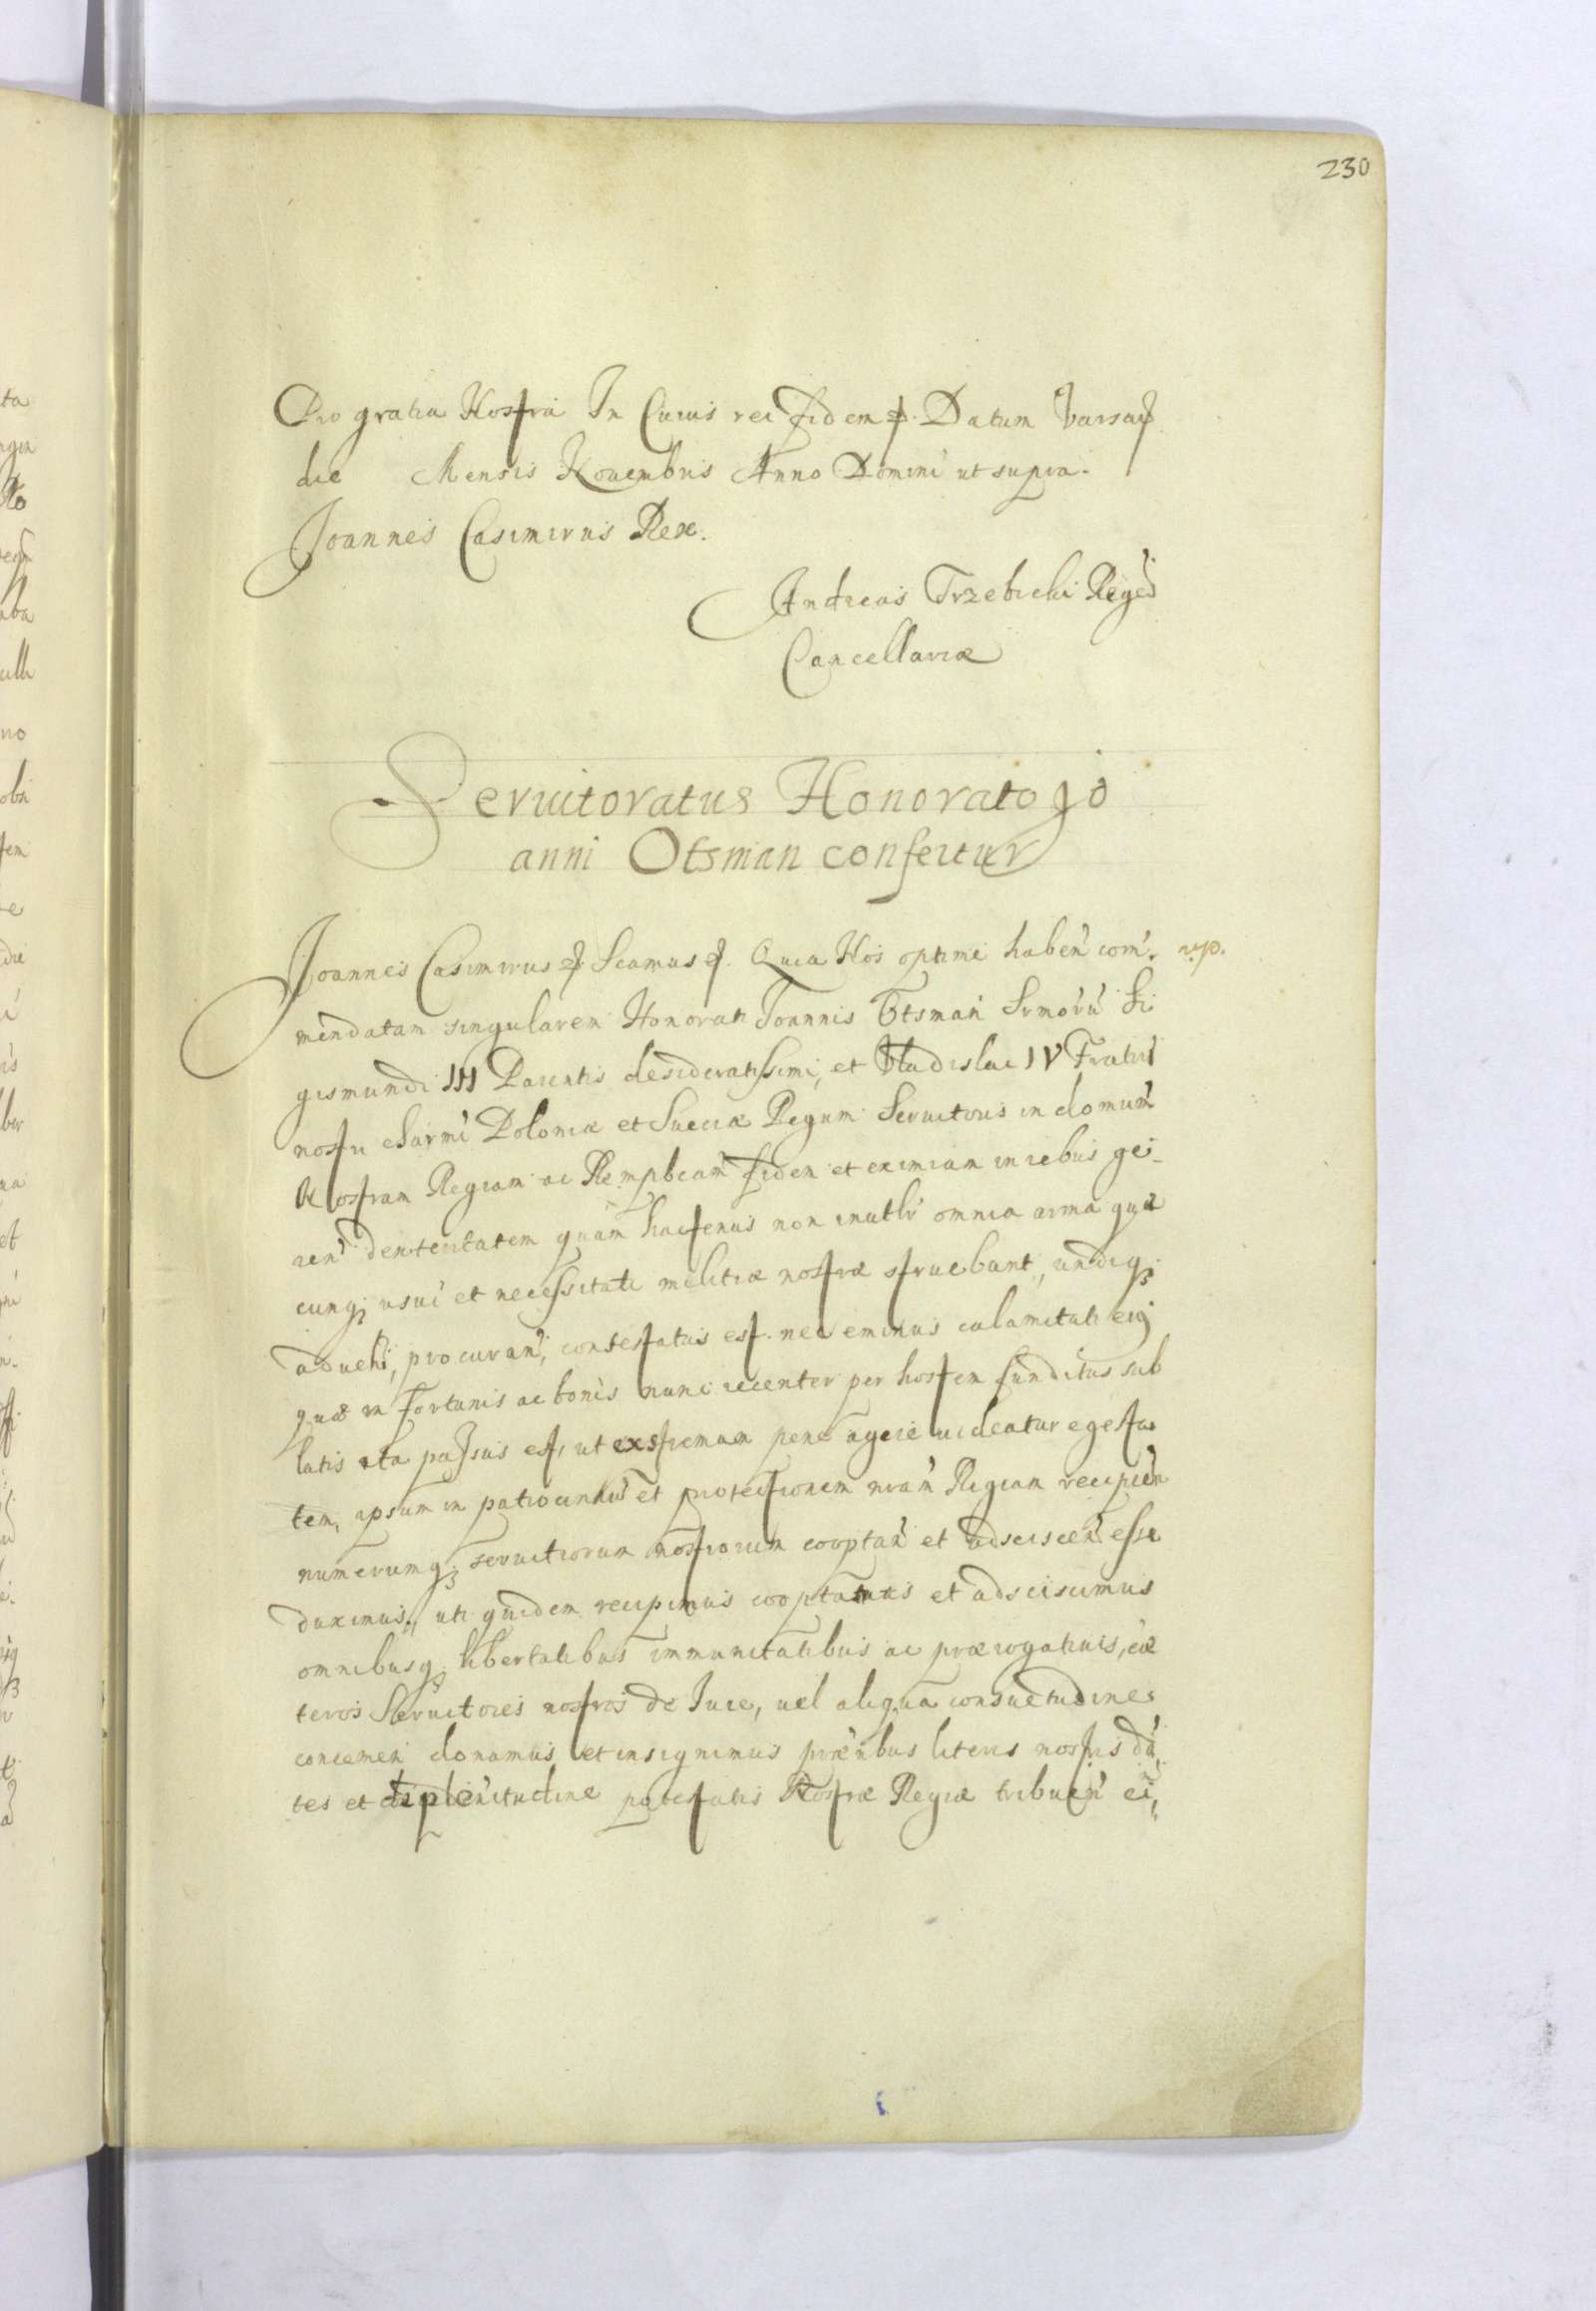 230
Pro gratia Nostra In Cuius rei fidem &. Datum Varsaɥ
die Mensis Nouembris Anno Domini ut supra.
Joannes Casimirus Rex.
Andreas Trzebicki Regēs
Cancellariæ
Seruitoratus Honorato Jo
anni Otsman confertur
Joannes Casimirus & Scamus &. Quia Nos optime haben̄ com̄. np.
mendatam singularem Honorati Joannis Otsman Srmorū Si
gismundi III Parentis desideratissimi, et Vladislai IV Fratris
nostri charmi Poloniæ et Sueciæ Regum Seruitoris in domum
Nostram Regiam ac Rempbcam fidem et eximiam in rebus ge-
ren̄ dexteritatem quam hactenus non inutlr omnia arma quæ
cunqꝫ usui et necessitati militiæ nostræ struebant, undiqꝫ
aduehi, procuran̄, contestatus est. nec eminus calamitati eiɡ
quæ in fortunis ac bonis nunc recenter per hostem funditus sub
latis ita passus est, ut extremam pene agere uideatur egesta
tem, ipsum in patrocinium et protectionem nram Regiam recipien
numerumqꝫ seruitiorum nostrorum cooptan̄ et adsciscen̄ esse
duximus, uti quidem recipimus cooptamus et adsciscimus
omnibusqꝫ libertatibus immunitatibus ac prærogatiuis, cæ
teros Seruitores nostros de Jure, uel aliqua consuetudines
concernen donamus et insignimus præntibus literis nostris dā,
tes et de plenitudine potestatis Nostræ Regiæ tribuen̄ ei,